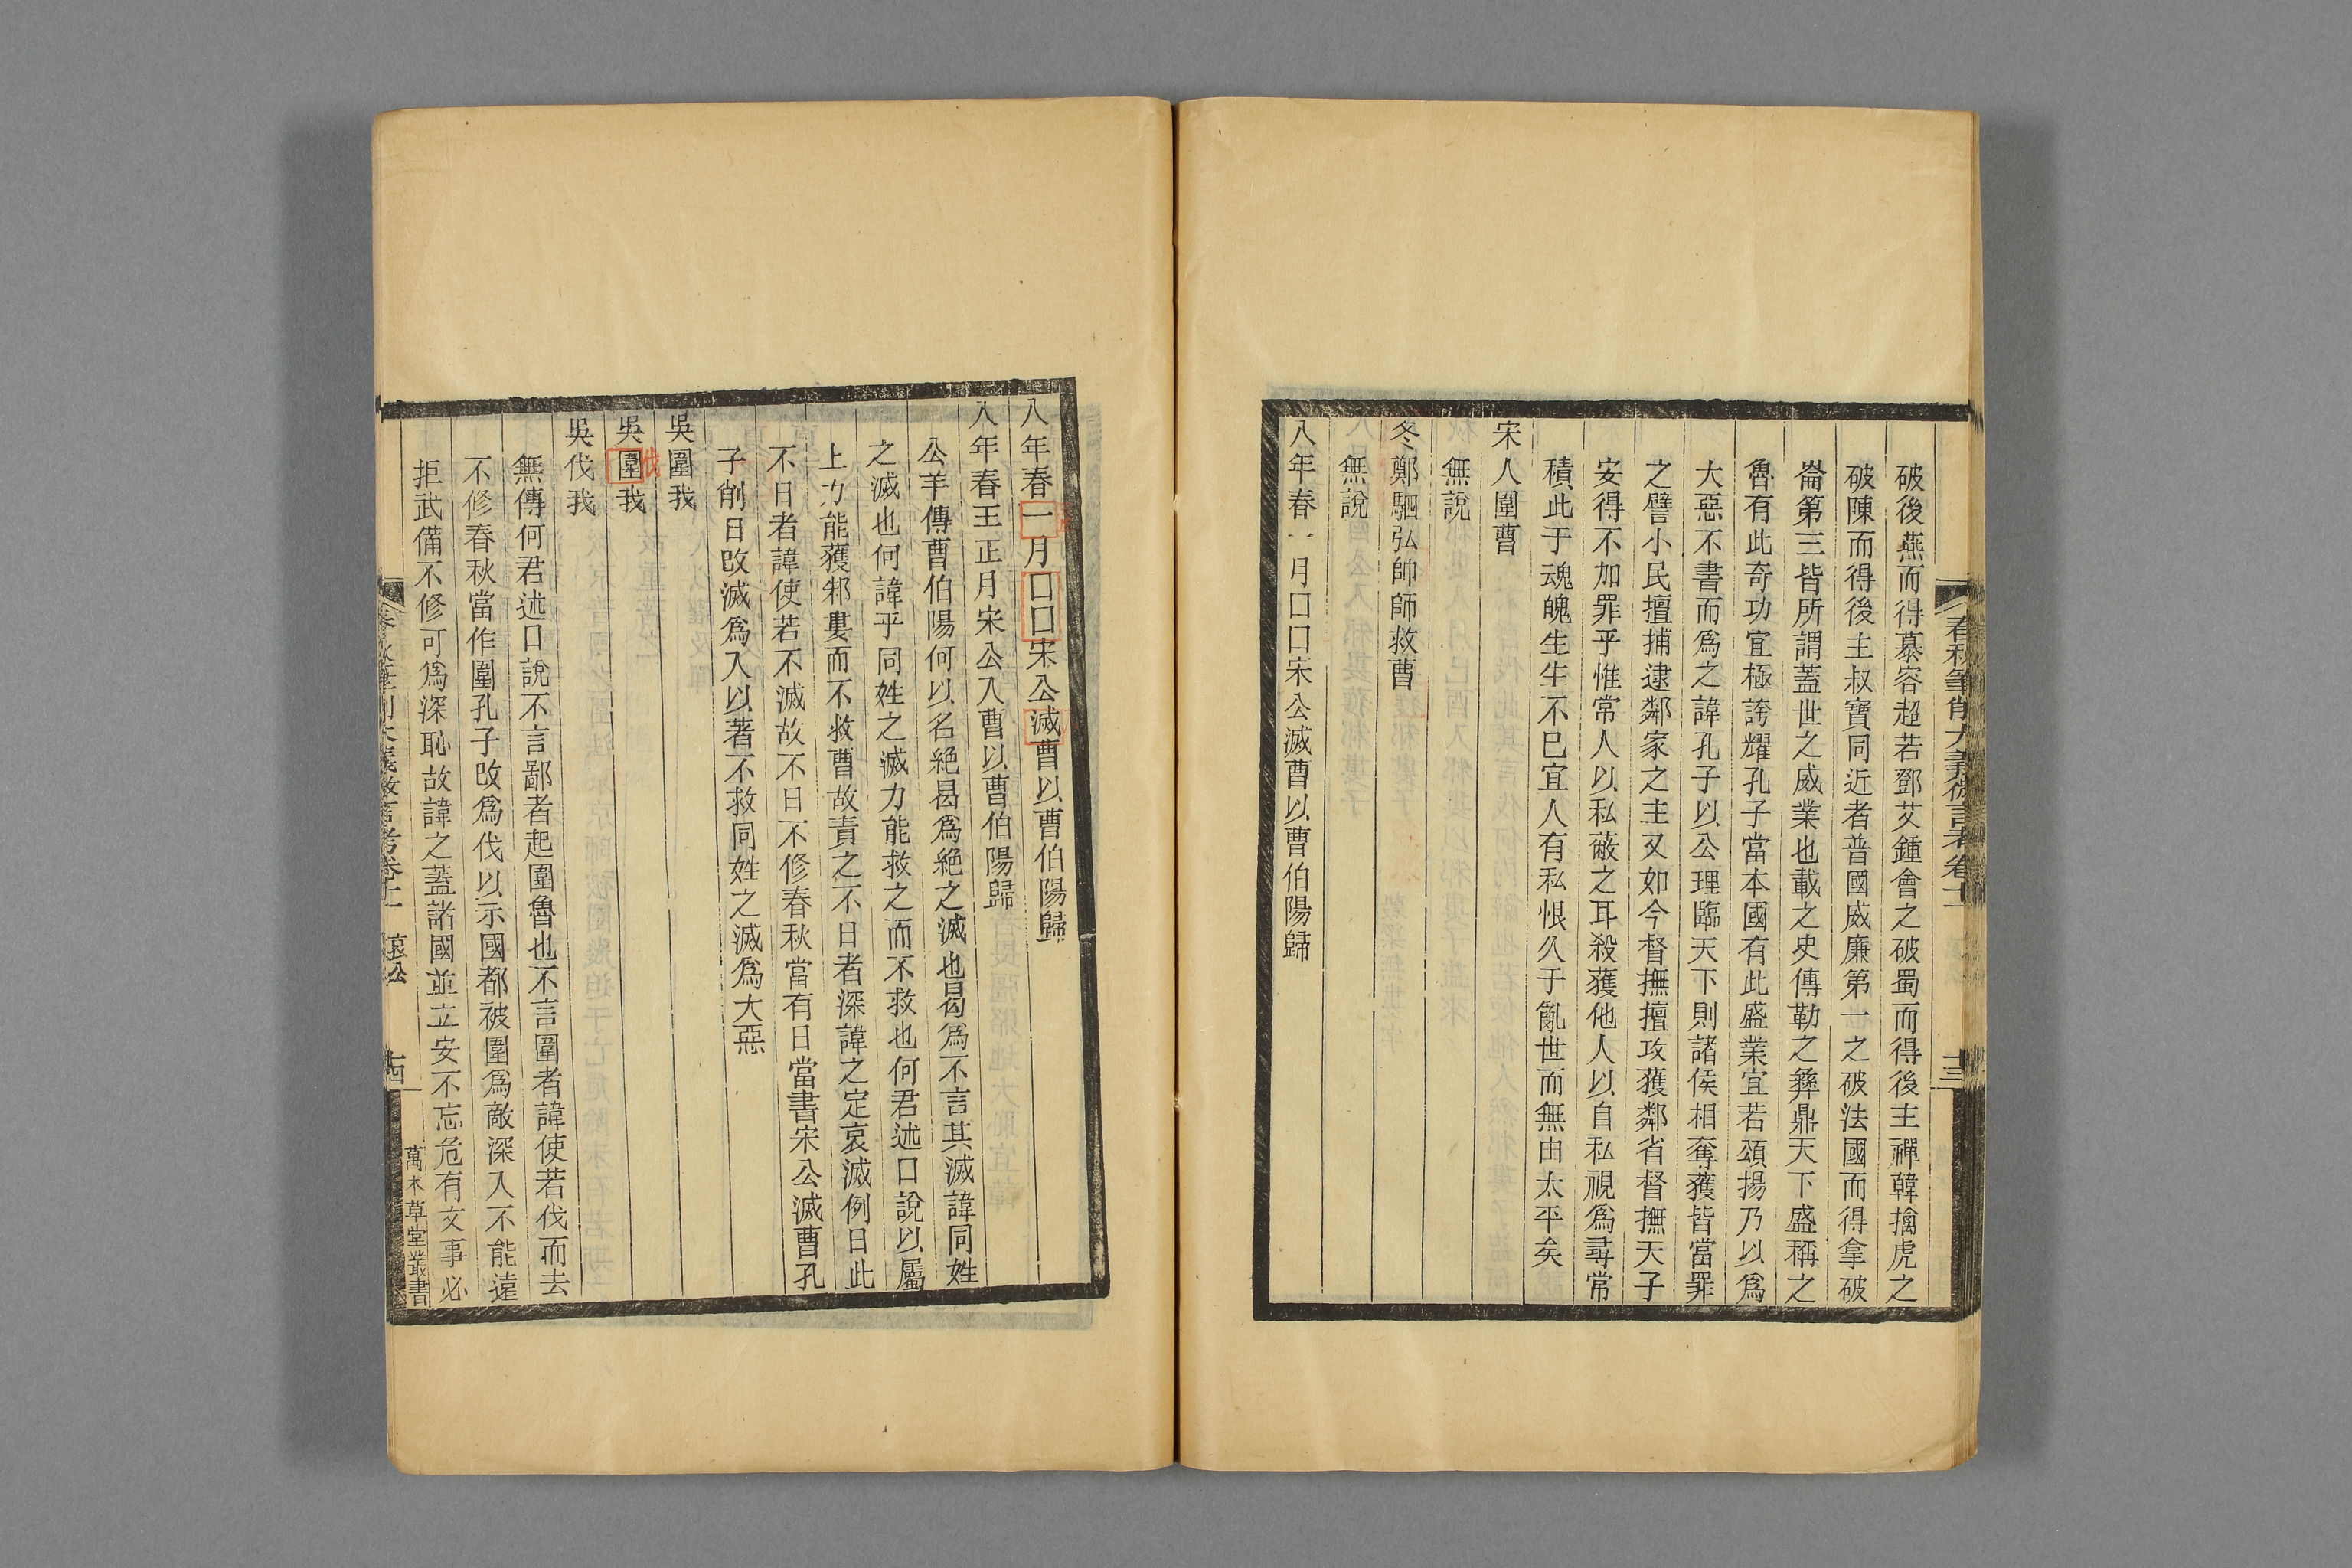 春秋筆削大義微言考卷十一
十三
破後燕而得慕容超若鄧艾鍾會之破蜀而得後主禪韓擒虎之
破陳而得後主叔寶同近者普國威廉第一之破法國而得拿破
崙第三皆所謂蓋世之威業也載之史傳勒之彝鼎天下盛稱之
魯有此奇功宜極誇耀孔子當本國有此盛業宜若頌揚乃以爲
大惡不書而爲之諱孔子以公理臨天下則諸侯相奪獲皆當罪
之譬小民擅捕逮鄰家之主又如今督撫擅攻獲鄰省督撫天子
安得不加罪乎惟常人以私蔽之耳殺獲他人以自私視爲尋常
積此于魂魄生生不已宜人有私恨久于亂世而無由太平矣
宋人圍曹
無說
冬鄭駟弘帥師救曹
無說
八年春一月囗囗宋公滅曹以曹伯陽歸
八年春一月囗囗宋公滅曹以曹伯陽歸
八年春王正月宋公入曹以曹伯陽歸
公羊傳曹伯陽何以名絶曷爲絶之滅也曷爲不言其滅諱同姓
之滅也何諱乎同姓之滅力能救之而不救也何君述口說以屬
上力能獲邾婁而不救曹故責之不日者深諱之定哀滅例日此
不日者諱使若不滅故不日不修春秋當有日當書宋公滅曹孔
子削日改滅爲入以著不救同姓之滅爲大惡
吳圍我
吳圍我
伐
吳伐我
無傳何君述口說不言鄙者起圍魯也不言圍者諱使若伐而去
不修春秋當作圍孔子改爲伐以示國都被圍爲敵深入不能遠
拒武備不修可爲深恥故諱之蓋諸國並立安不忘危有文事必
春秋筆削大義微言考卷十一 哀公
十四
萬木草堂叢書